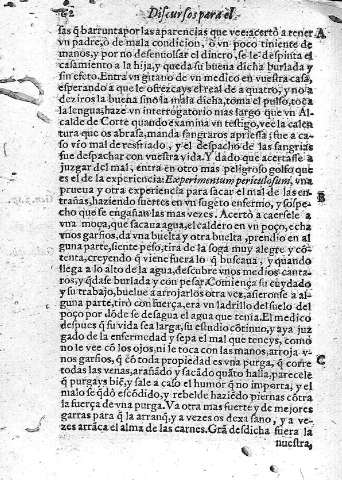 62 Discursos para él
sas q̃ barrunta por las aparencias que vee: acertò a tener A
vn padre, ò de mala condicion, ò vn poco tiniente de
manos, y por no desenuolsar el dinero, se le despinta el
casamiento a la hija, y queda su buena dicha burlada y
sin efeto. Entra vn gitano de vn medico en vuestra casa,
esperando a que le ofrezcays el real de a quatro, y no a
deziros la buena sino la mala dicha, toma el pulso, toca
la lengua, haze vn interrogatorio mas largo que vn Al-
calde de Corte quando examina vn testigo, vee la calen
tura que os abrasa, manda sangraros apriessa, fue a ca-
so vio mal de resfriado, y el despacho de las sangrias
fue despachar con vuestra vida. Y dado que acertasse a
juzgar del mal, entra en otro mas peligroso golfo que
es el de la experiencia: Experimentum periculosum, vna
prueua y otra experiencia para sacar el mal de las en- B
trañas, haziendo suertes en vn sugeto enfermo, y sospe
cho que se engañan las mas vezes. Acertò a caersele a
vna moça, que saca vna agua, el caldero en vn poço, echa
vnos garfios, dà vna buelta y otra buelta, prendio en al
guna parte, siente peso, tira de la soga muy alegre y cõ-
tenta, creyendo q̃ viene fuera lo q̃ buscaua, y quando
llega a lo alto de la agua, descubre vnos medios canta-
ros, y q̃dase burlada y con pesar. Comiença su cuydado
y su trabajo, buelue a arrojarlos otra vez, asieronse a al-
guna parte, tirò con fuerça, era vn ladrillo del suelo del
poço por dõde se desagua el agua que tenia. El medico
despues q̃ su vida sea larga, su estudio cõtinuo, y aya juz
gado de la enfermedad y sepa el mal que teneys, como
no le vee cõ los ojos, ni le toca con las manos, arroja v-
nos garfios, q̃ cõ toda propiedad es vna purga, q̃ corre C
todas las venas, arañãdo y sacãdo quãto halla, parecele
q̃ purgays biẽ, y sale a caso el humor q̃ no importa, y el
malo se q̃dò escõdido, y rebelde haziẽdo piernas cõtra
la fuerça de vna purga. Va otra mas fuerte y de mejores
garras para q̃ la arranq̃, y a vezes os dexa sano, y a ve-
zes arrãca el alma de las carnes. Grã desdicha fuera la
nuestra,